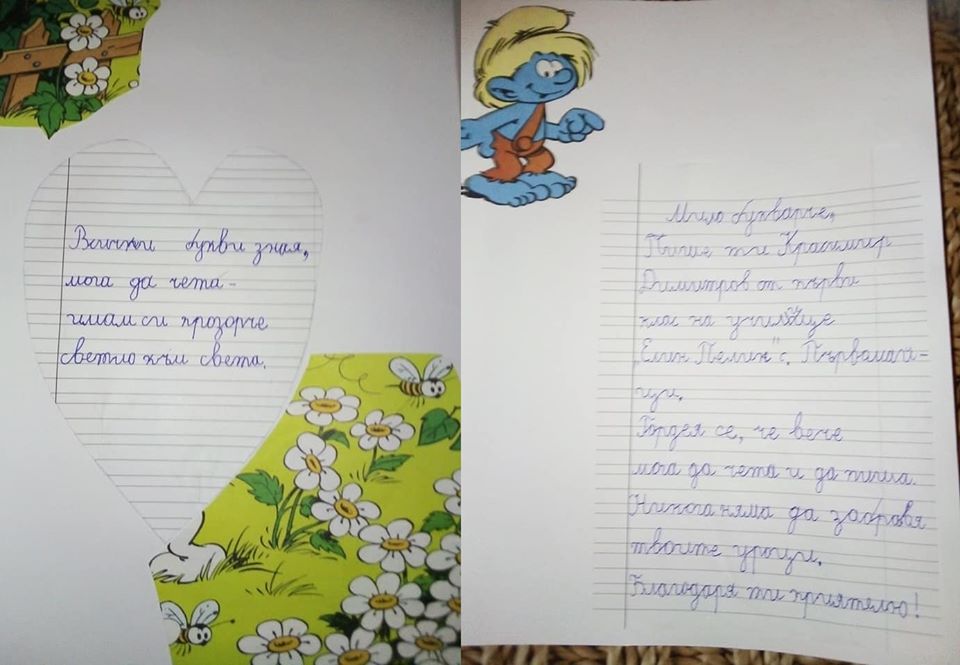 Всички букви зная,
мога да чета -
имам си прозорче
светло към света.
Мило букварче,
Пише ти Красимир
Димитров от първи
клас на училище
„Елин Пелин" с. Първомай-
ци.
Гордея се, че вече
мога да чета и да пиша.
Никога няма да забравя
твоите уроци.
Благодаря ти приятелю!